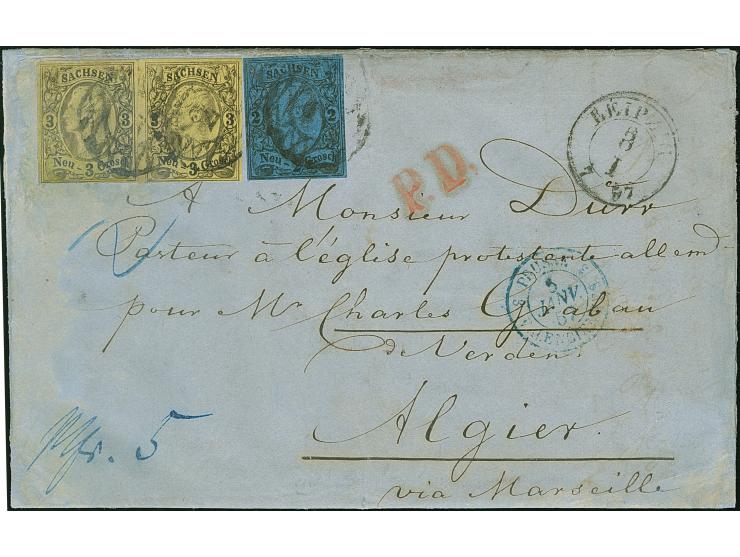 SACHSEN
3 3
Neu 3 Grosch
SACHSEN
3 3
Neu 3 Grosch
SACHSEN
2 2
Neu 2 Grosch
LEIPZIG
3
1
57
P.D.
A Monsieur Durr
Pasteur à l'église protestante allemd
pour Mr Charles Grabau
de Verden
Algier.
via Marseille
PRUSSE
5
JANV.
5